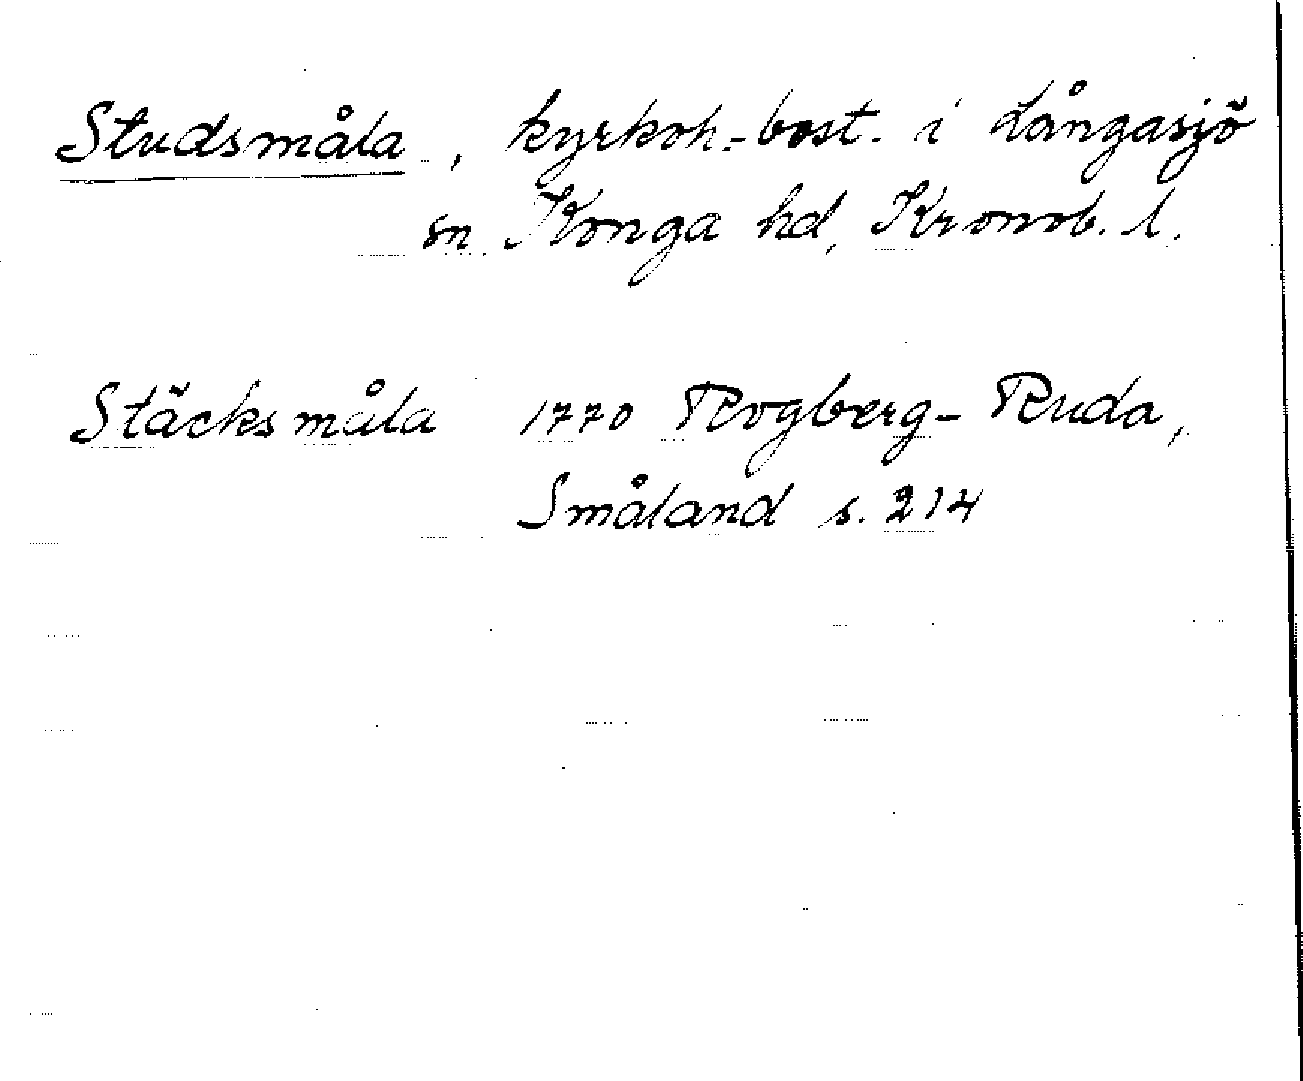 Studsmåla, kyrkoh.-bost. i Långasjö
sn. Konga hd, Kronob. l.
Stäcksmåla 1770 Rogberg-Ruda,
Småland s. 214